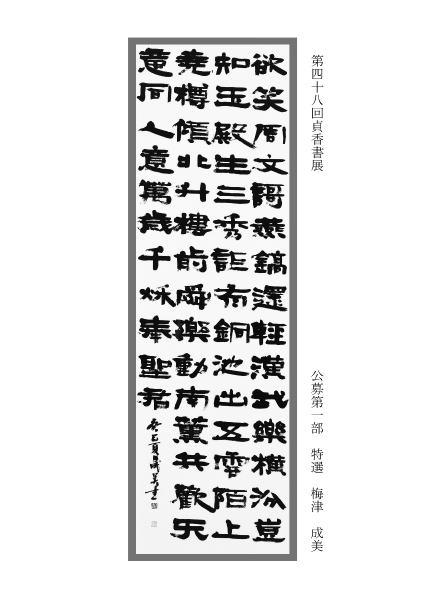 第四十八回貞香書展
公募第一部　特選　梅津　成美
欲笑周文謌燕鎬還輕漢武樂横汾豈
知玉殿生三秀詎有銅池出五雲陌上
堯樽傾北斗樓前舜樂動南薫共歡天
意同人意萬歳千秋奉聖君